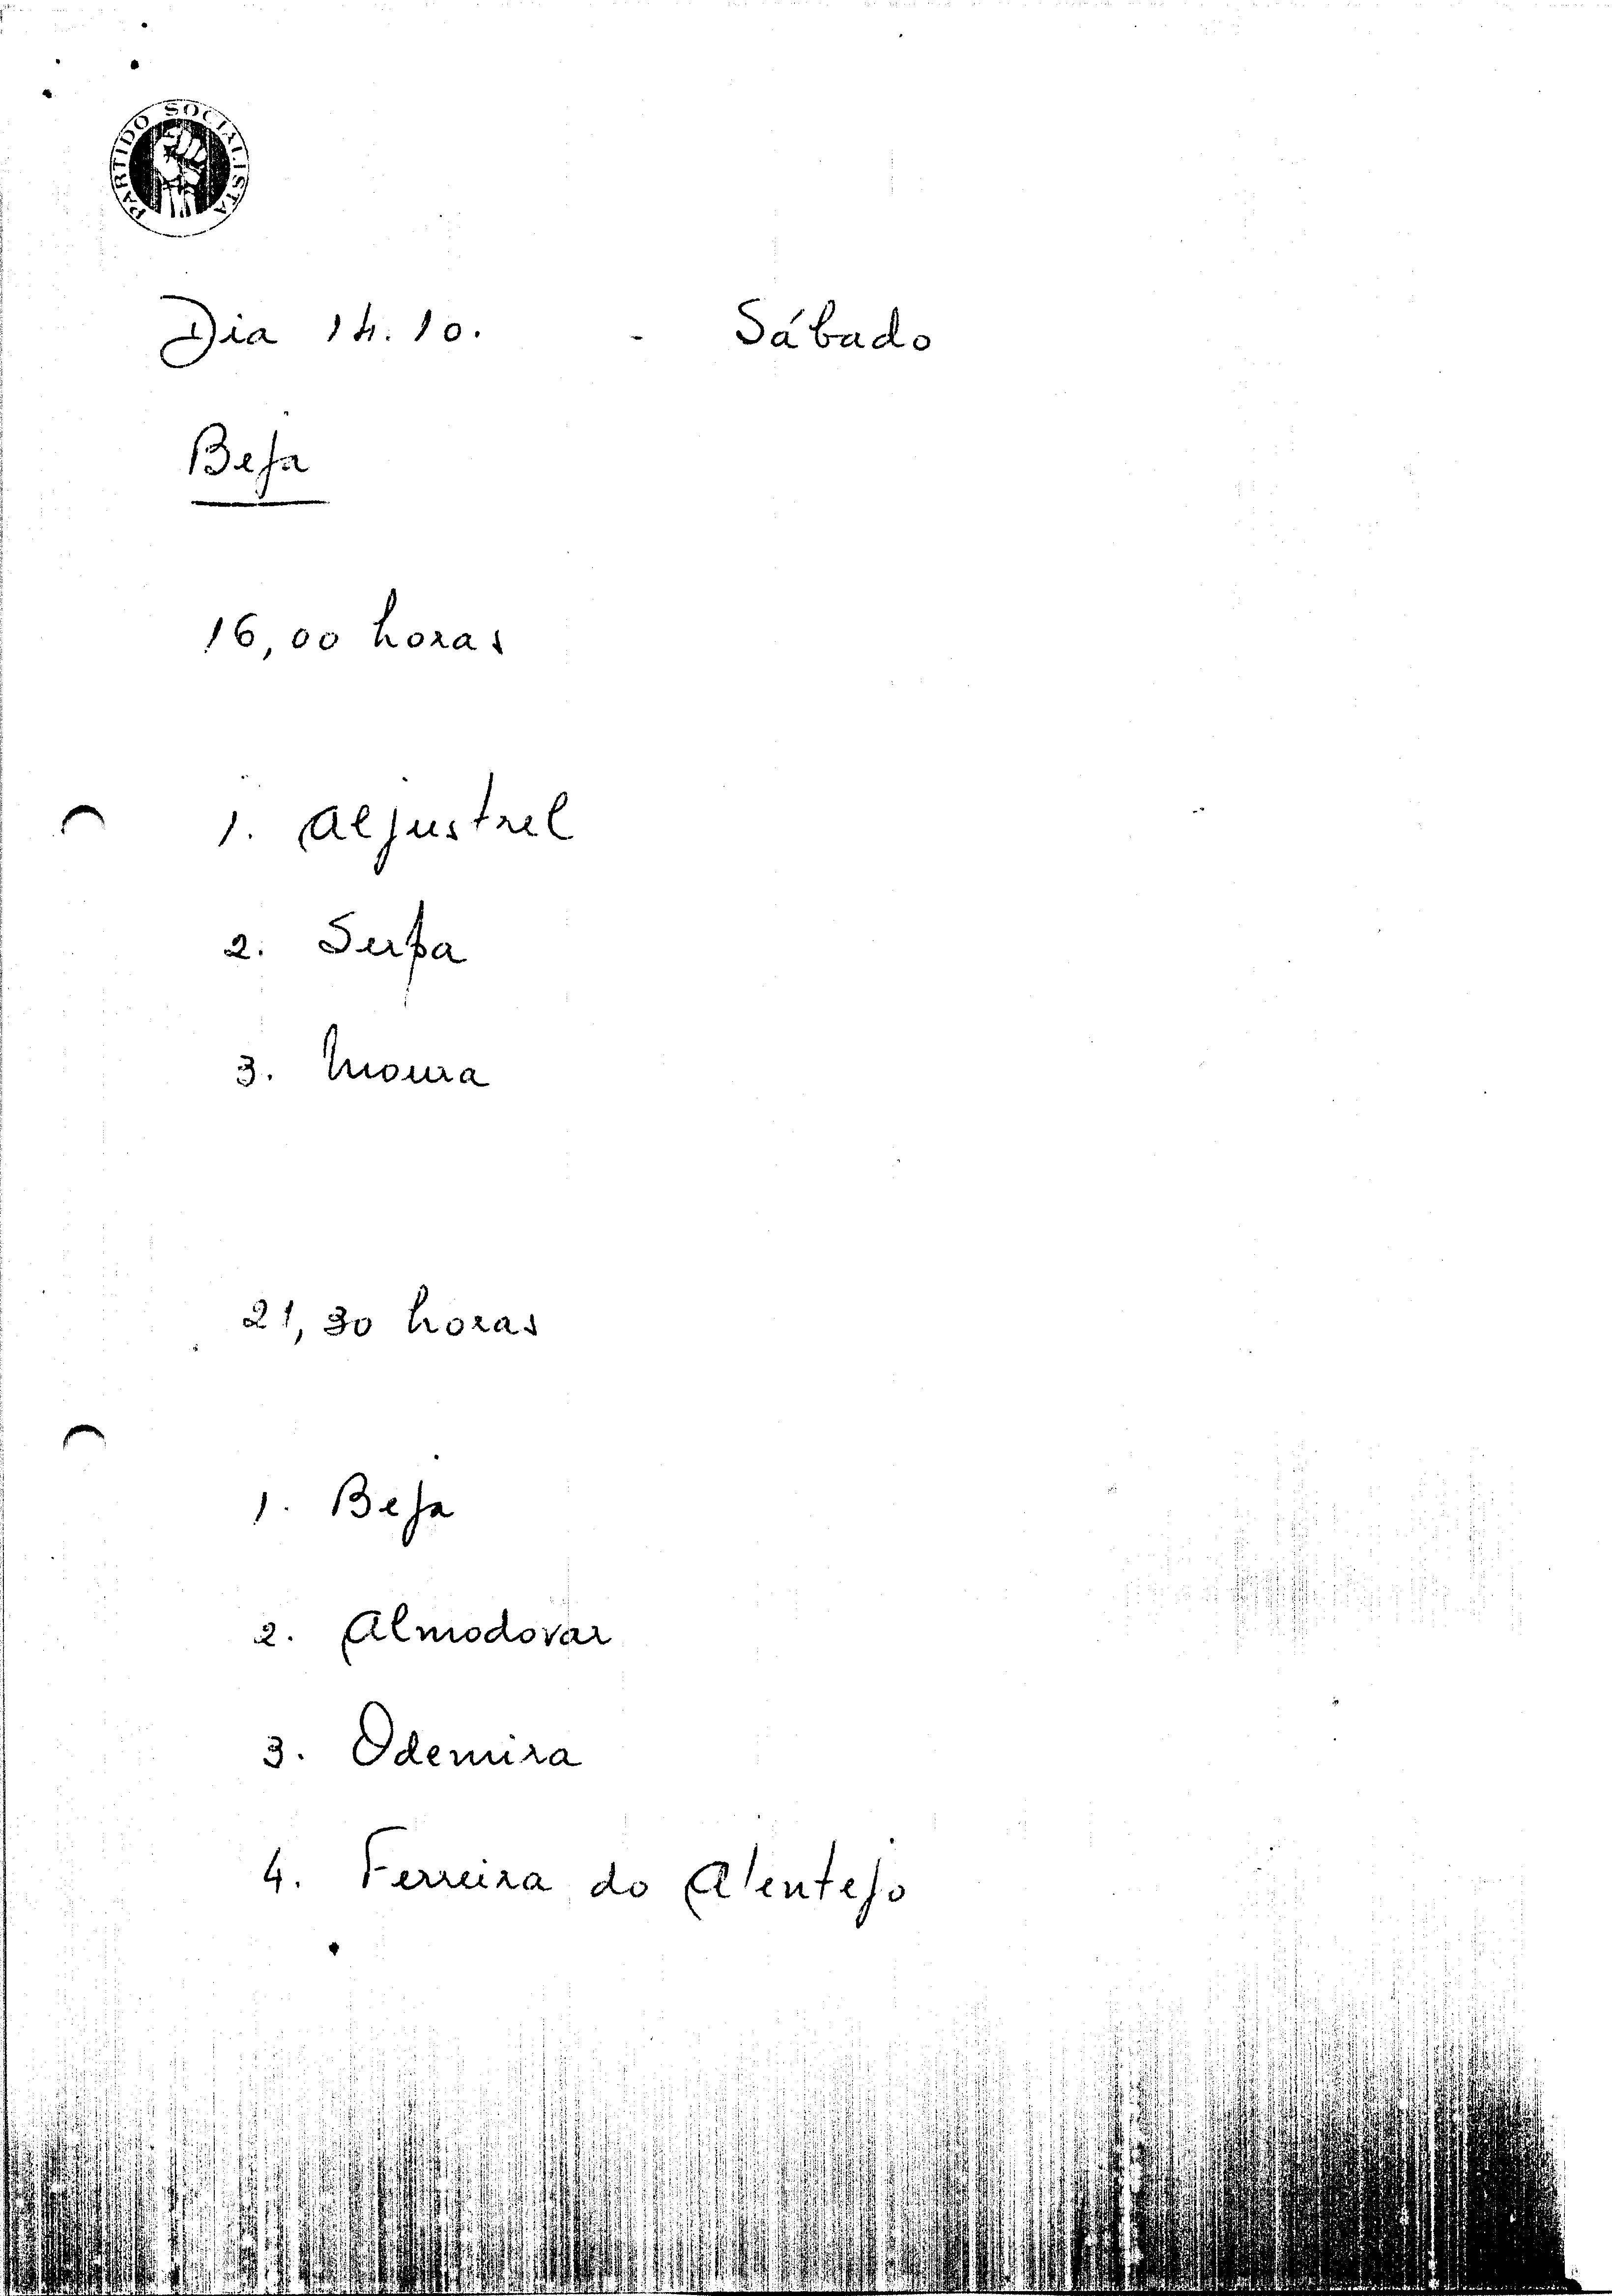 PARTIDO SOCIALISTA
Dia 14.10. - Sábado
Beja
16,00 horas
1. Aljustrel
2. Serpa
3. Moura
21,30 horas
1. Beja
2. Almodovar
3. Odemira
4. Ferreira do Alentejo